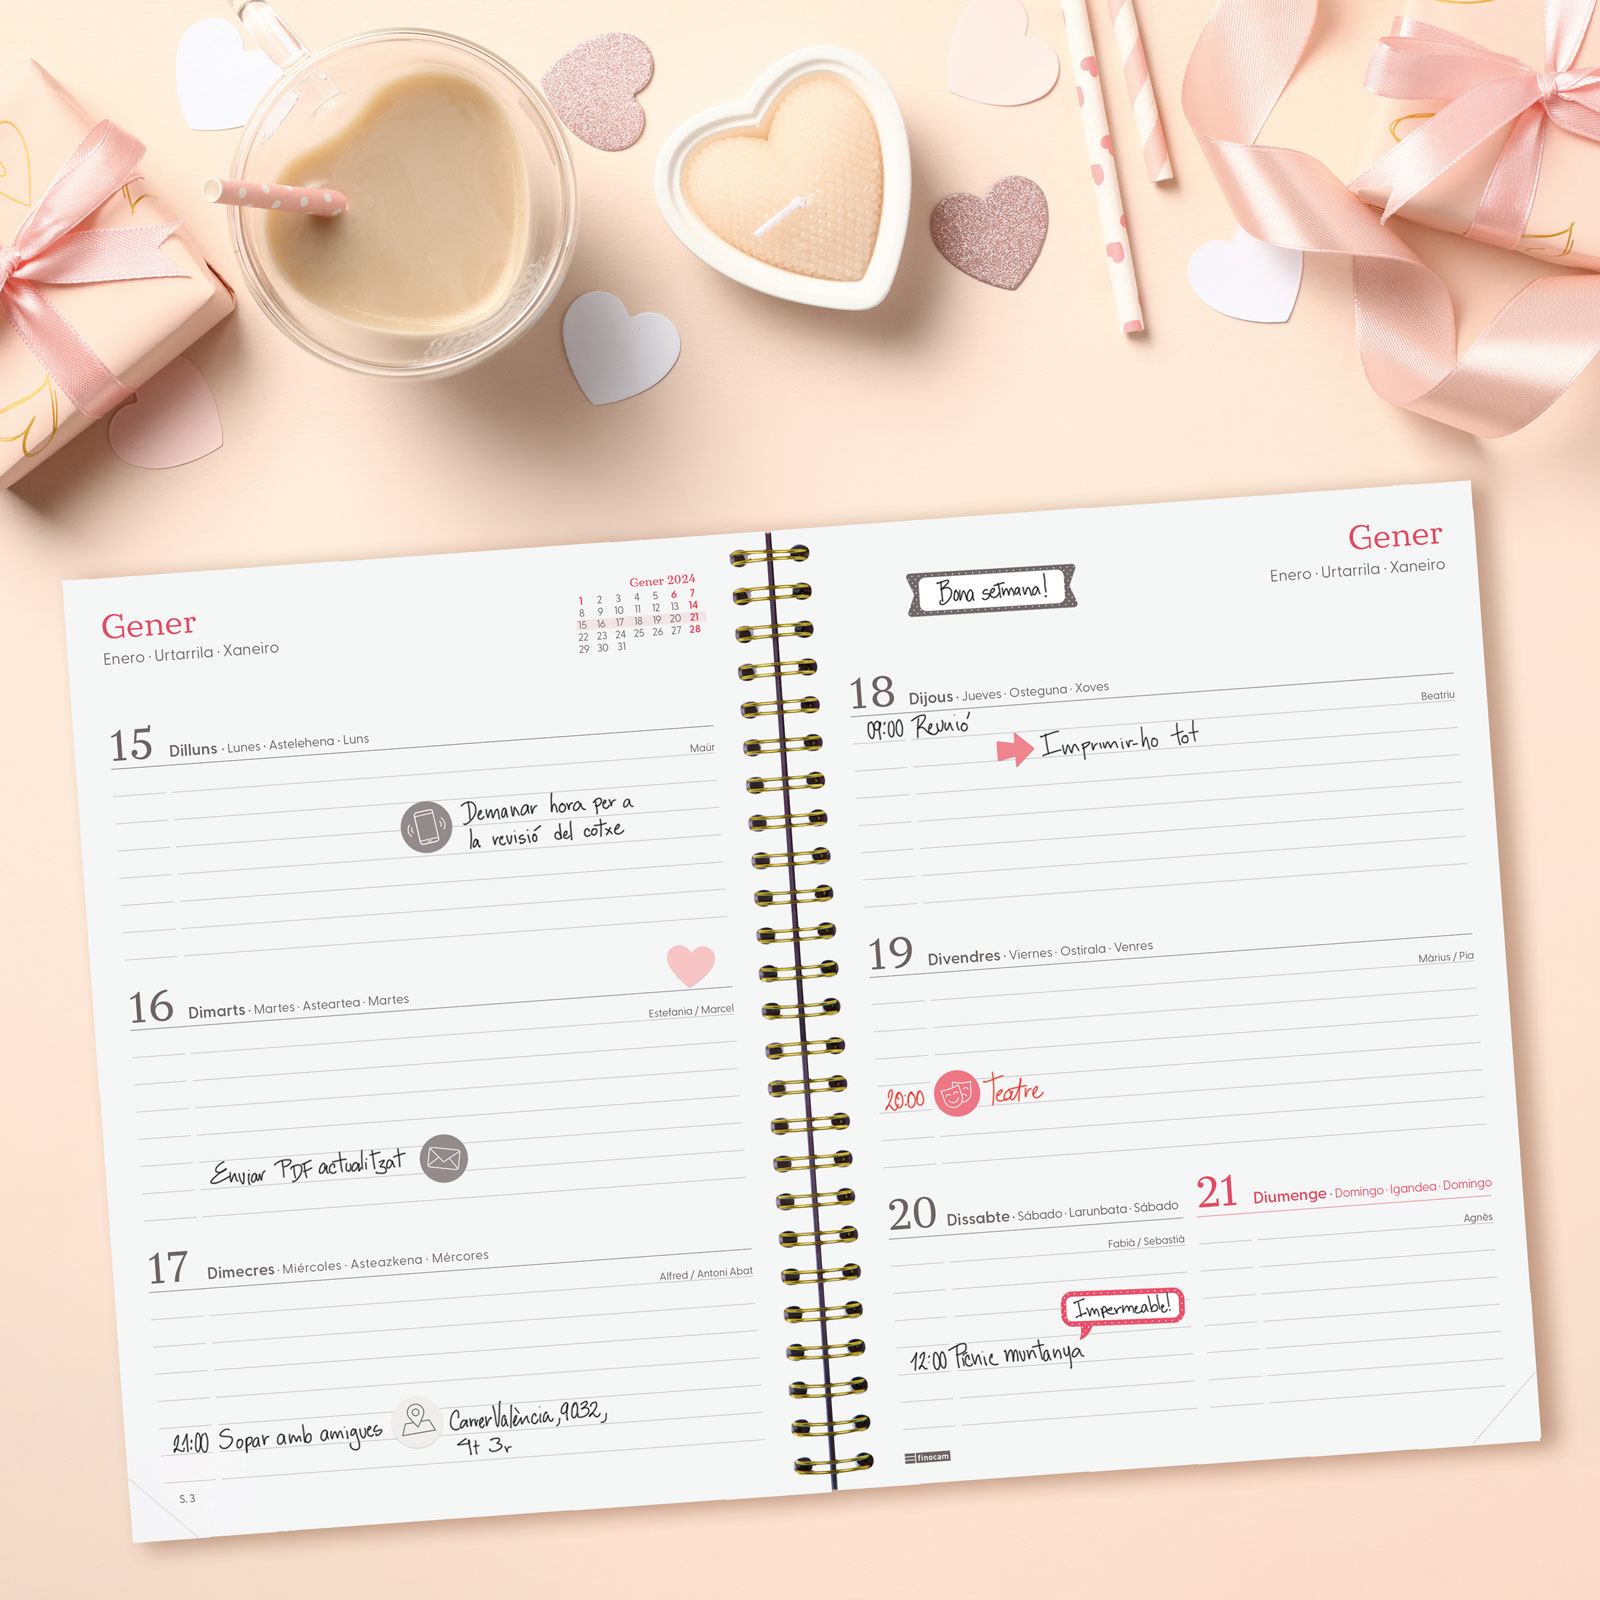 Gener
Enero · Urtarrila · Xaneiro
Gener 2024
1 2 3 4 5 6 7
8 9 10 11 12 13 14
15 16 17 18 19 20 21
22 23 24 25 26 27 28
29 30 31
15 Dilluns · Lunes · Astelehena · Luns
Maür
Demanar hora per a
la revisió del cotxe
16 Dimarts · Martes · Asteartea · Martes
Estefania / Marcel
Enviar PDF actualitzat
17 Dimecres · Miércoles · Asteazkena · Mércores
Alfred / Antoni Abat
21:00 Sopar amb amigues
Carrer València, 9032,
4t 3r
S. 3
Gener
Enero · Urtarrila · Xaneiro
Bona setmana!
18 Dijous · Jueves · Osteguna · Xoves
Beatriu
09:00 Reunió
Imprimir-ho tot
19 Divendres · Viernes · Ostirala · Venres
Màrius / Pia
20:00 Teatre
20 Dissabte · Sábado · Larunbata · Sábado
Fabià / Sebastià
Impermeable!
12:00 Pícnic muntanya
21 Diumenge · Domingo · Igandea · Domingo
Agnès
finocam